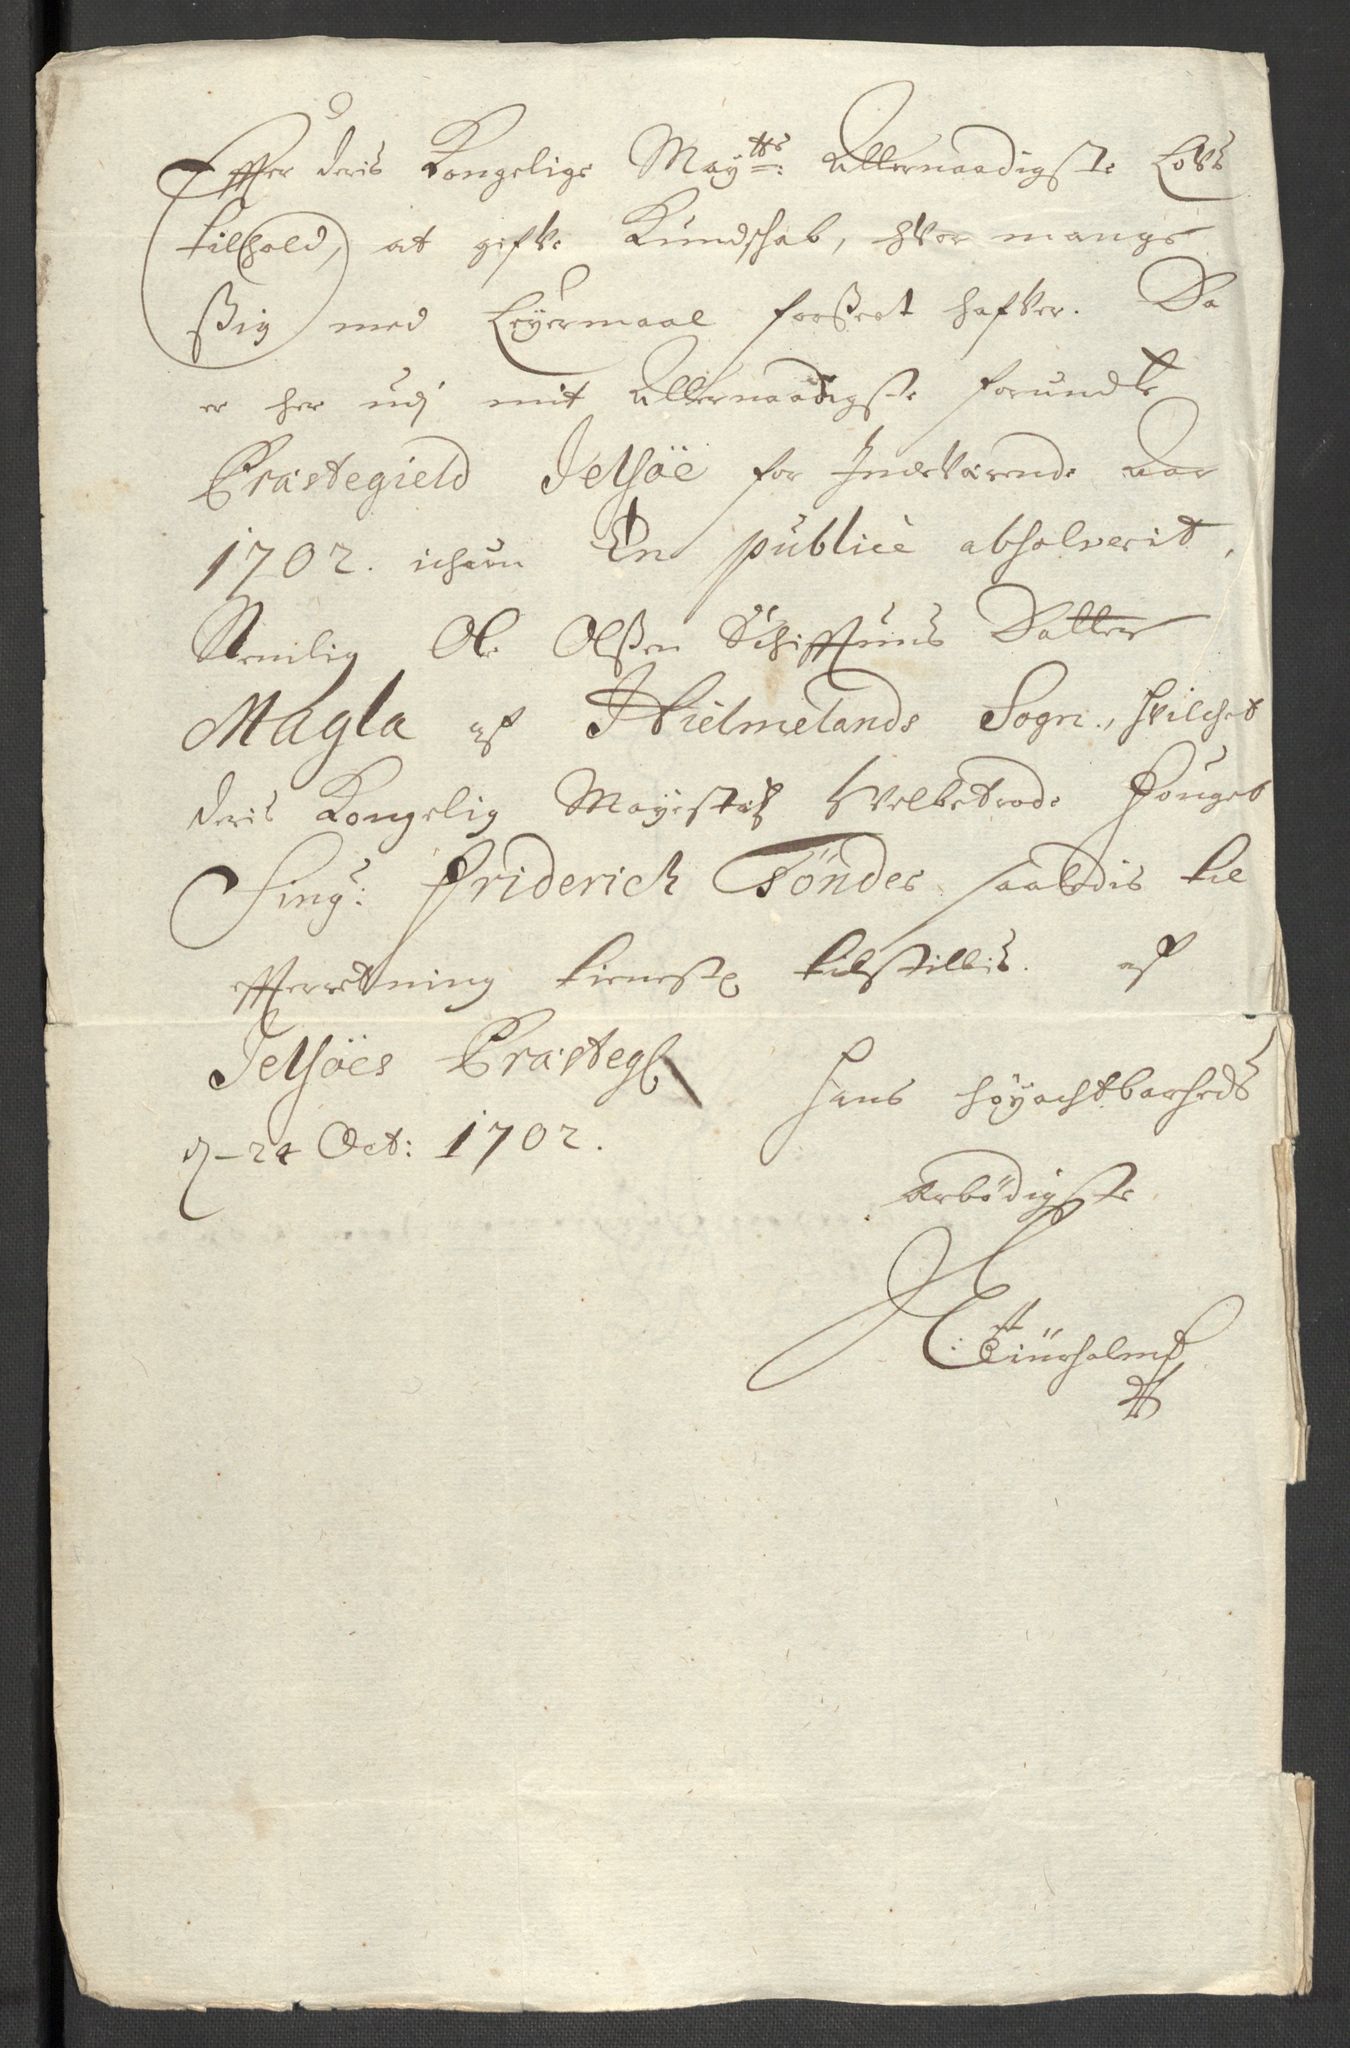 Effter deris Kongelige May:tts Allernaadigste Lovs
tilhold, at gifve Kundschab, hvor mange
ßig med Leyermaal forßeet hafver. Da
er her udj mit Allernaadigste forundte
Præstegield Jelsöe for Indeværende Aar
1702. ichun En publicè absolverit,
Nemlig Ole Olßen Datter
Magla af Hielmelands Sogn, hvilchet
deris Kongelig Mayestets Velbetrode Fouget
Sing:r Friderich Töndes saaledis til
efferretning tienestl tilstillis. af
Jelsöes Præstegl Hans Höyachtbarheds
d-24 Oct: 1702.
ærbödigste